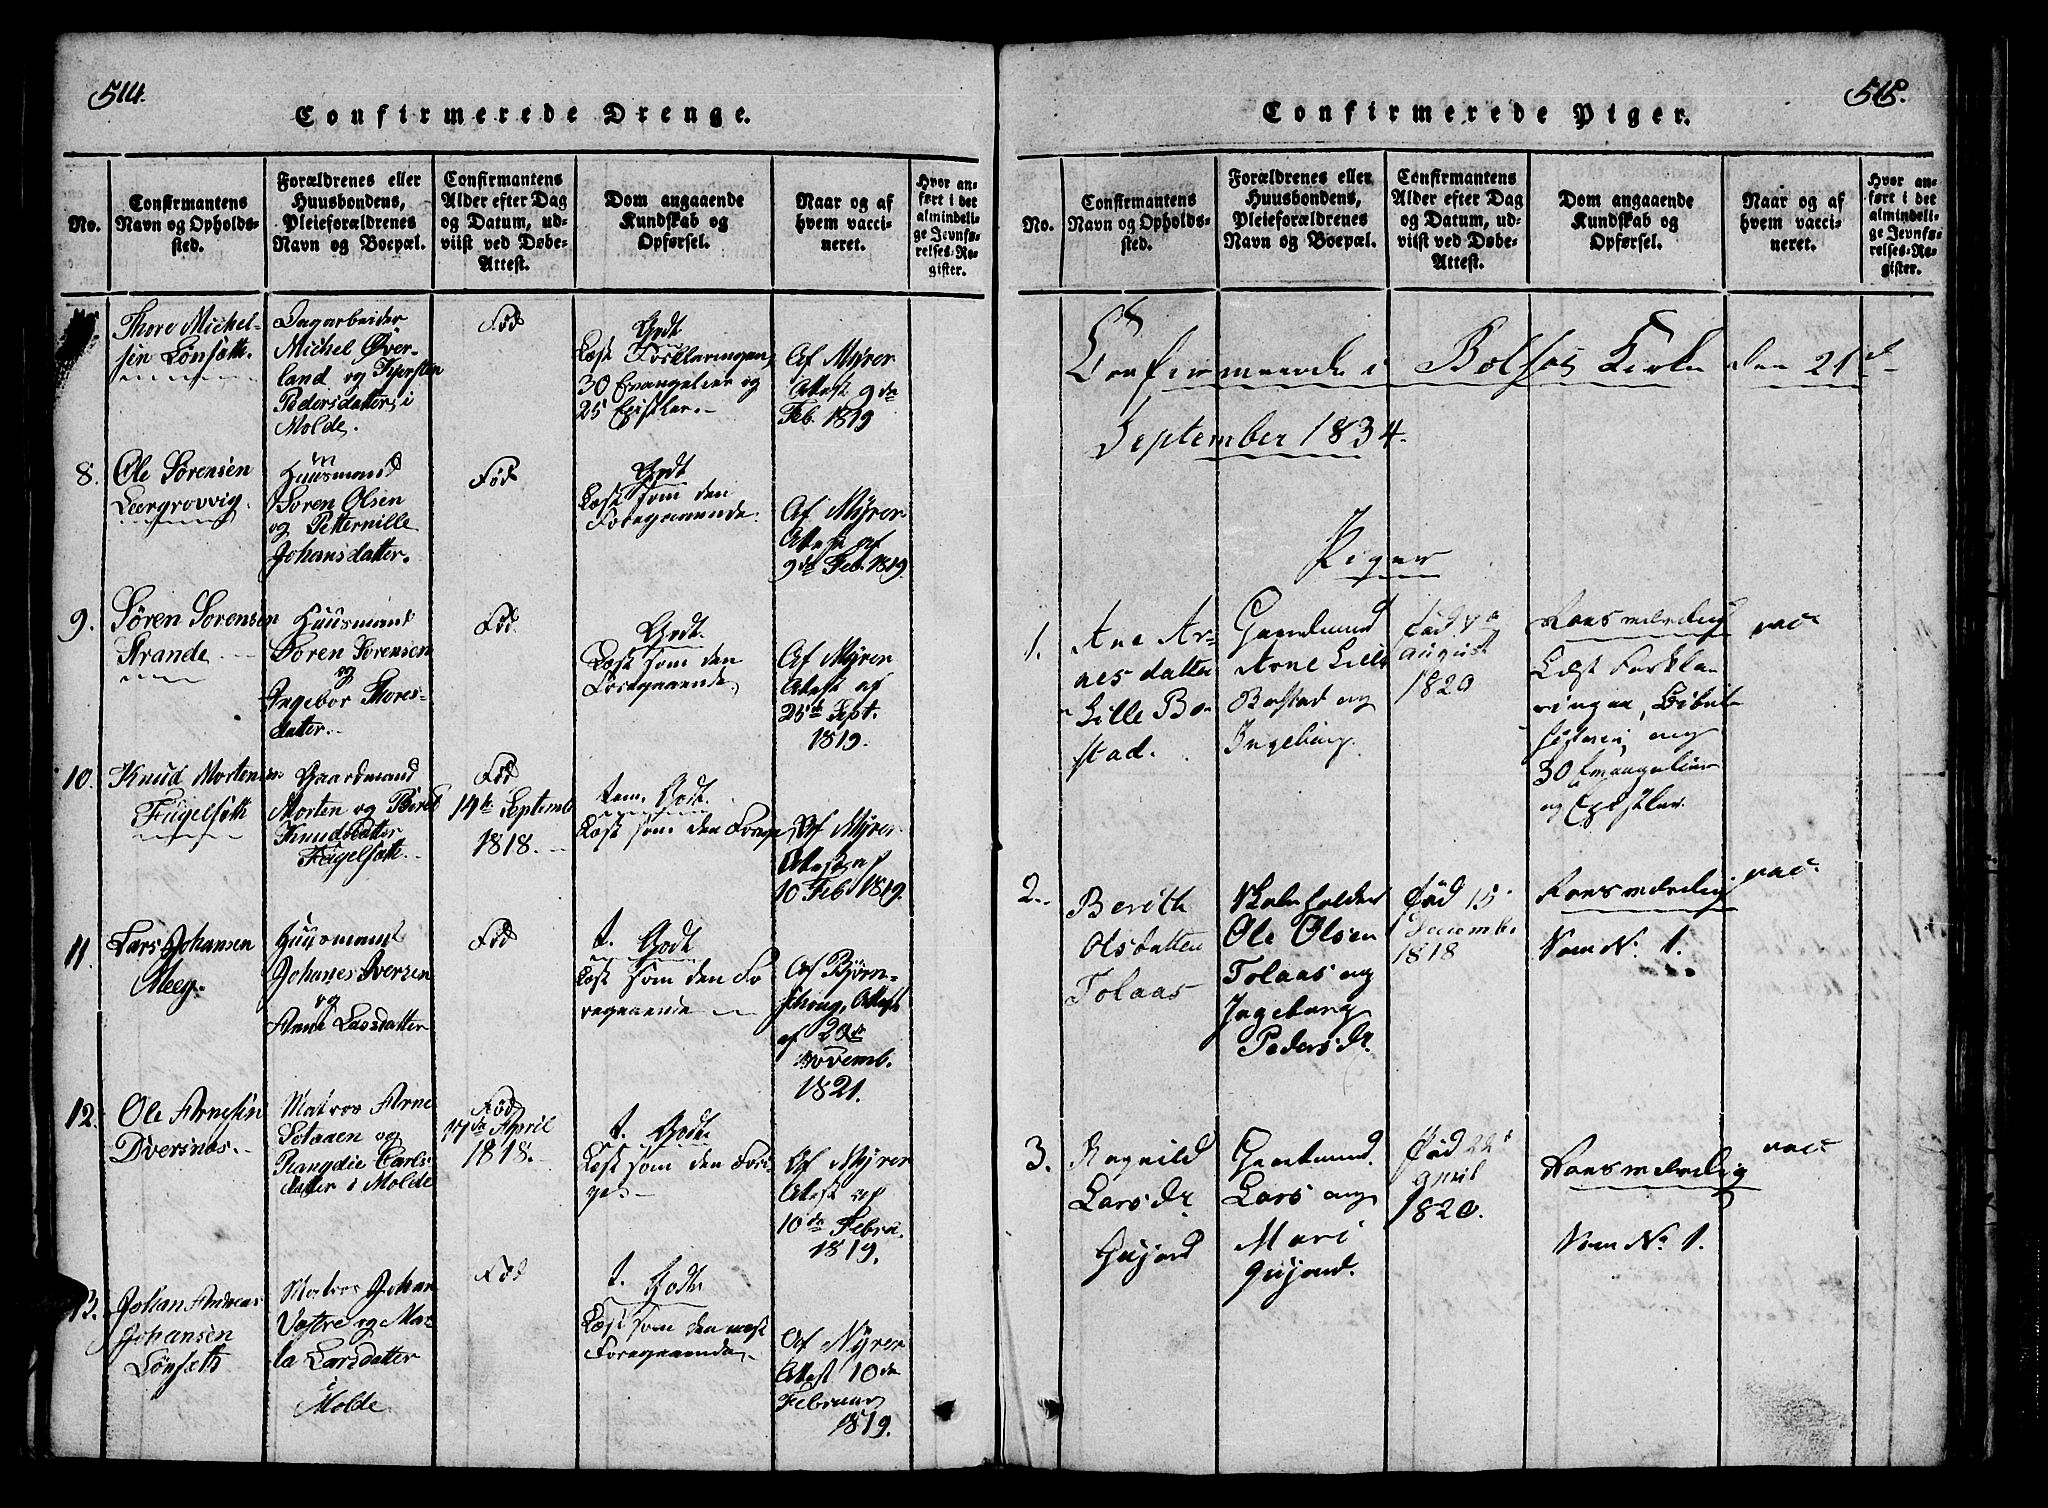 514.
Confirmerede Drenge.
No.
Confirmantens
Navn og Opholds-
sted.
Forældrenes eller
Huusbondens,
Pleieforældrenes
Navn og Boepæl.
Confirmantens
Alder efter Dag
og Datum, ud-
viist ved Døbe-
Attest.
Dom angaaende
Kundskab og
Opførsel.
Naar og af
hvem vacci-
neret.
Hvor an-
ført i det
almindeli-
ge Jevnfø-
relses-Re-
gister.
Thore Michel-
sen Lønsæth.
Dagarbeider
Michel Øver-
land og Kjersten
Pedersdatter i
Molde.
Fød
Godt
Læst Forklaringen,
30 Evangelier og
25 Epistler.
Af Myrer
Attest 9de
Feb. 1819
8.
Ole Sørensen
Leergrovvig.
Huusmand
Søren Olsen
og Petternille
Johansdatter.
Fød
Godt
Læst som den
Foregaaende.
Af Myrer
Attest af
9de Feb. 1819.
9.
Søren Sørensen
Strande
Huusmand
Søren Sørensen
og
Ingebor Thores-
datter.
Fød
Godt.
Læst som den
Foregaaende.
Af Myrer
Attest af
25de Sept.
1819.
10.
Knud Mortensen
Fugelsæth
Gaardmand
Morten og Berit
Knudsdatter
Fugelsæth.
Fød
14de Septemb
1818.
tem. Godt.
Læst som den Forige
Af Myrer
Attest af
10 Feb 1819.
11.
Lars Johansen
Meeg.
Huusmand
Johanes Iversen
og
Anne Larsdatter
Fød
t. Godt
Læst som den Fo
regaaende
Af Bjørn-
Attest
af 29de
Novemb.
1821.
12.
Ole Arnesen
Dversnæs.
Matros Arne
Setanen og
Rangdie Carls-
datter i Molde
Fød
17de April
1818.
t. Godt.
Læst som den Fori
ge.
Af Myrer
Attest af
10de Febru.
1819.
13.
Johan Andreas
Johansen
Lønsæth
Matros Johan
Vestre og Mar
ta Larsdatter
i
Molde
Fød
t. Godt
Læst som den næst
Foregaaende.
Af Myrer
Attest 10de
Februar
1819.
515.
Confirmerede Piger.
No.
Confirmantens
Navn og Opholds-
sted.
Forældrenes eller
Huusbondens,
Pleieforældrenes
Navn og Boepæl.
Confirmantens
Alder efter Dag
og Datum, ud-
viist ved Døbe-
Attest.
Dom angaaende
Kundskab og
Opførsel.
Naar og af
hvem vacci-
neret.
Hvor an-
ført i det
almindeli-
ge Jevnfø-
relses-Re-
gister.
Confirmerede i Bolsøe Kirke den 21d
September 1834.
Piger
1.
Ane Ar-
nesdatter
Lille Bo-
stad.
Gaardmand
Arne Lille
Bostad og
Ingeborg.
fød
august
1820
Roesværdig
Læst Forkla-
ringen, Bibel-
historie og
30 Evangelier
og Epistler.
vac
2.
Berith
Olsdatter
Tolaas
Skoleholder
Ole Olsen
Tolaas og
Ingeborg
Pedersdr.
Fød 15
December
1818
Roesværdig
Som No. 1.
vac.
3.
Ragnild
Larsdr
Gujord
Gaardmand.
Lars og
Mari
Gujord.
Fød 22d
april
1820.
Roesværdig
Som No. 1.
vac